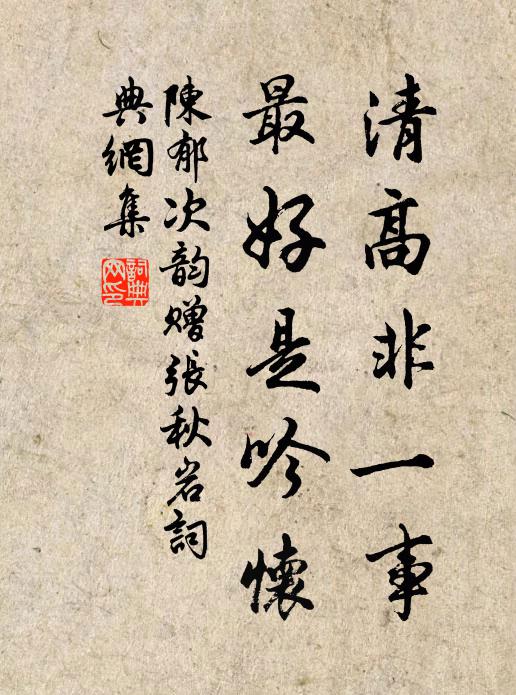 清高非一事
最好是吟懷
陳郁次韵贈張秋岩詞
典網集
詞典網印